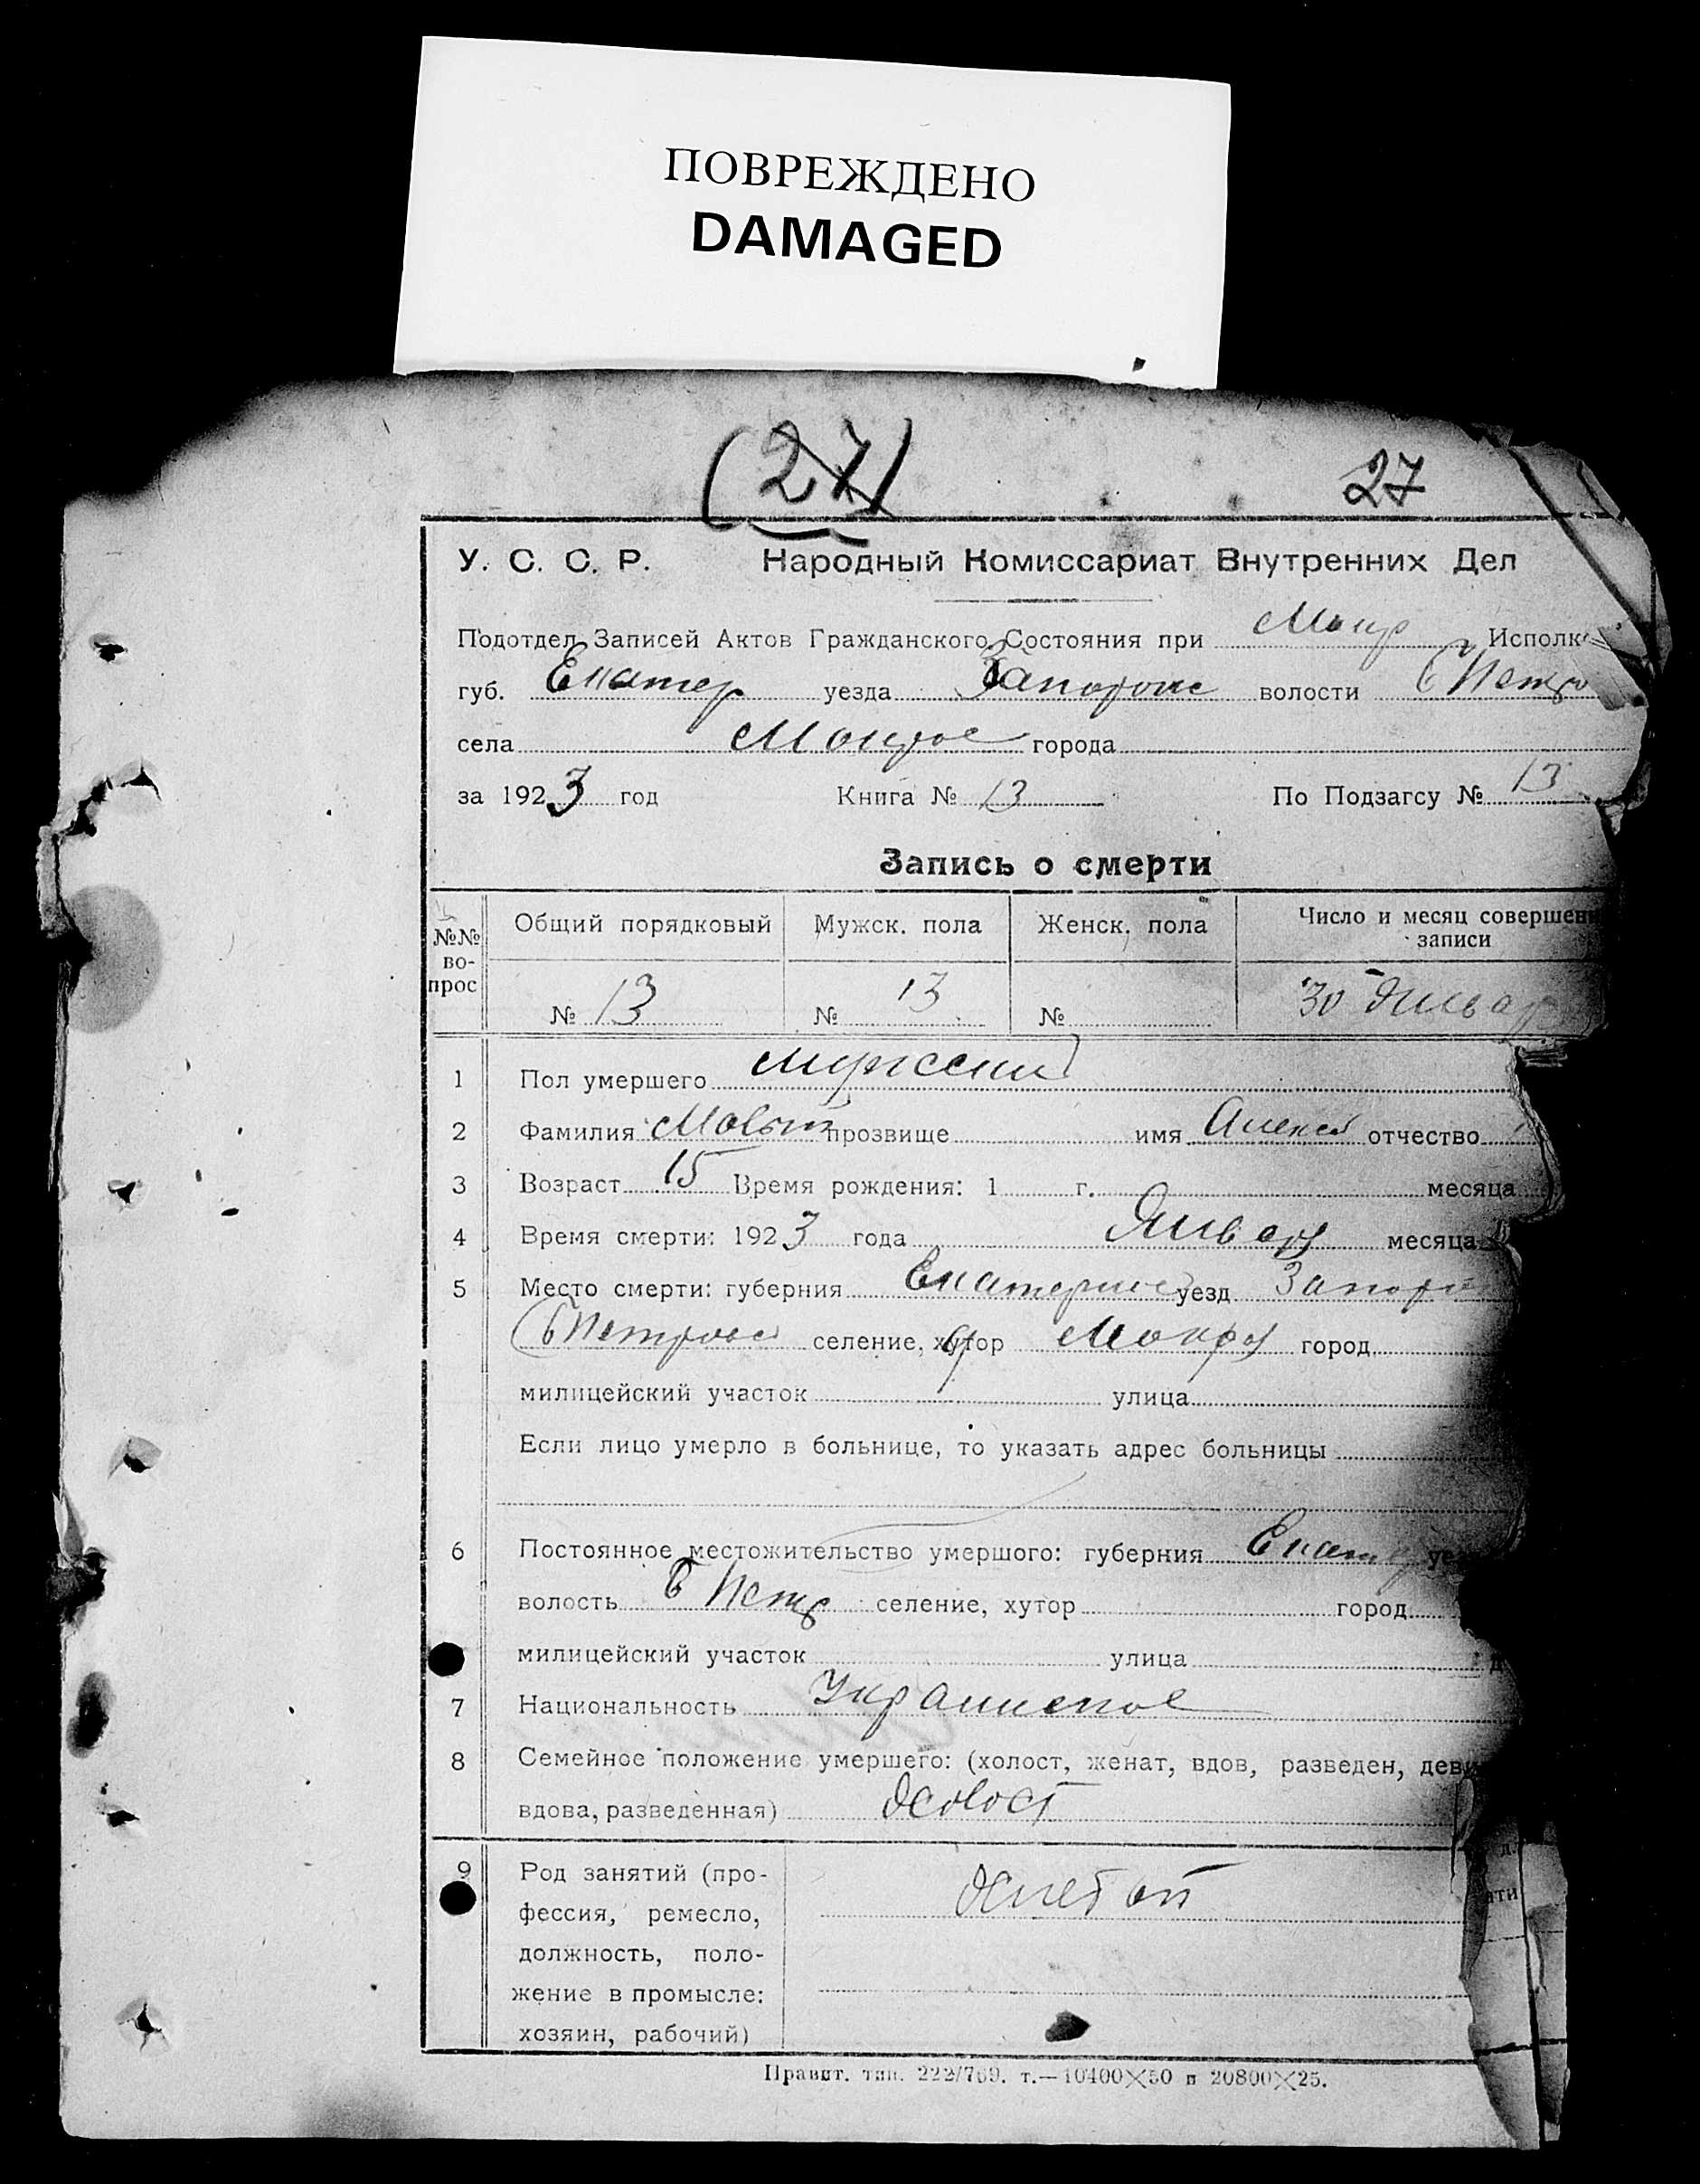 ПОВРЕЖДЕНО
DAMAGED
(27) 27
У. С. С. Р. Народный Комиссариат Внутренних Дел
Подотдел Записей Актов Гражданского Состояния при Мокр Исполк
губ. Екатер уезда Запорож волости Б Петро
села Мокрое города
за 1923 год Книга № 13 По Подзагсу № 13
Запись о смерти
№№ во-прос Общий порядковый Мужск. пола Женск. пола Число и месяц совершен
записи
№ 13 № 13 № 30 Январ
1 Пол умершего мужской
2 Фамилия прозвище имя Алексей отчество
3 Возраст 15 Время рождения: 1 г. месяца
4 Время смерти: 1923 года Января месяца
5 Место смерти: губерния Екатерин уезд Запорож
селение, хутор город
милицейский участок улица
Если лицо умерло в больнице, то указать адрес больницы
6 Постоянное местожительство умершого: губерния Екатер уе
волость Б Петр селение, хутор город
милицейский участок улица д
7 Национальность
8 Семейное положение умершего: (холост, женат, вдов, разведен, деви
вдова, разведенная) холост
9 Род занятий (про-
фессия, ремесло,
должность, поло-
жение в промысле:
хозяин, рабочий)
Правит. тип. 222/769. т.—10400×50 п 20800×25.